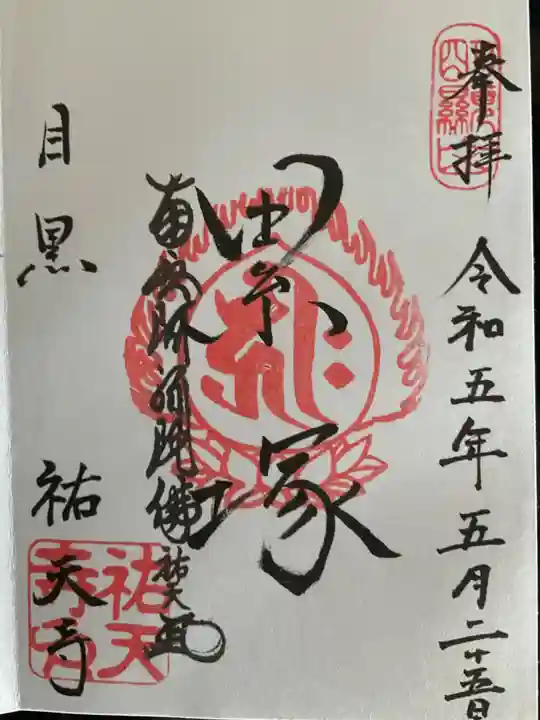 奉拝
令和五年五月二十五日
累塚
南無阿弥陀佛
祐天
目黒
祐天寺
祐天寺